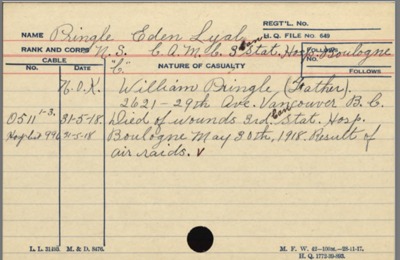 REGT'L. No.
NAME Pringle Eden Lyal
H. Q. FILE No. 649
RANK AND CORPS N. S. C.A.M.C. 3 Can Stat. Hosp. Boulogne
CABLE
No. DATE "C" NATURE OF CASUALTY
FOLLOWS
No.
FOLLOWS
N.O.K. William Pringle (Father).
2621-29th Ave. Vancouver B.C.
O511 1-3. 31-5-18. Died of wounds 3rd Can Stat. Hosp.
Hosp List 996 21-5-18 Boulogne May 30th, 1918. Result of
air raids. v
L. L. 31493. M. & D. 8476.
M. F. W. 42-100m.-28-11-17.
H. Q. 1772-39-893.